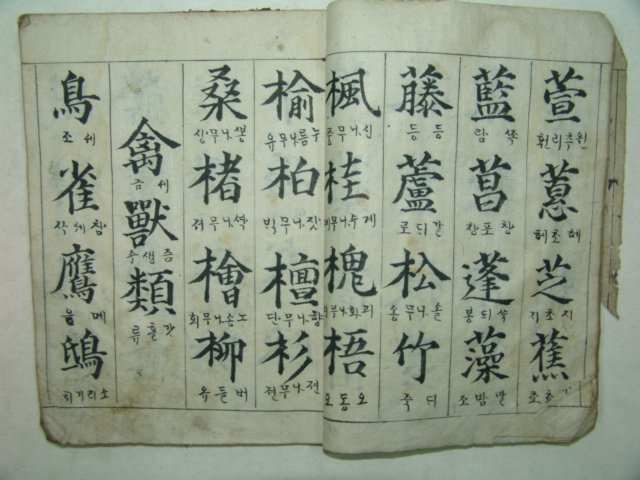 萱
원추리훤
蕙
혜초혜
芝
지초지
蕉
藍
쪽람
菖
창포창
蓬
쑥듸봉
藻
말밤조
藤
등등
蘆
갈듸로
松
솔나무송
竹
듸죽
楓
신나무풍
桂
계수나무
槐
괴화나무
梧
오동오
楡
누름나무유
柏
잣나무빅
檀
향나무단
杉
전나무전
桑
뽕나무상
楮
나무저
檜
노송나무회
柳
버들유
禽
세금
獸
즘생수
類
갓흘류
鳥
세조
雀
참세작
鷹
메응
鴟
소리기치